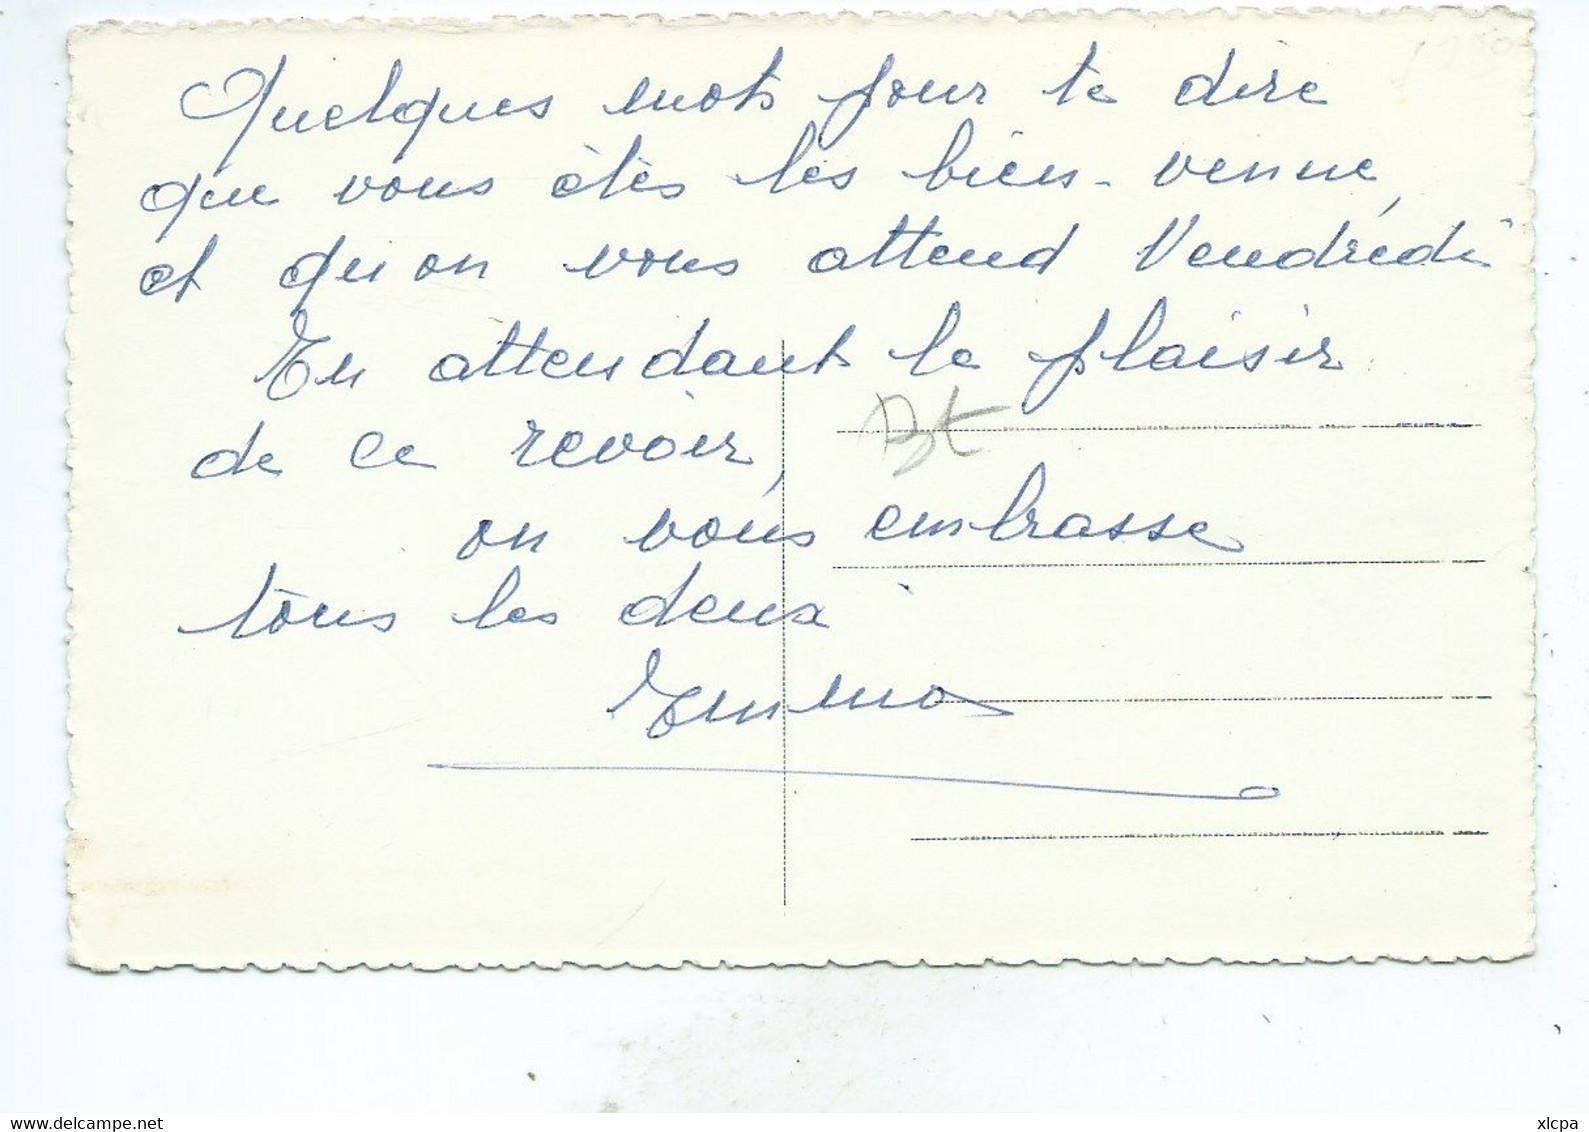 Quelques mots pour te dire
que vous êtès les bien-venue,
et qu'on vous attend Vendrédi
En attendant le plaisir
de ce revoir,
Bt
on vous embrasse
tous les deux
Emma
www.delcampe.net
xlcpa